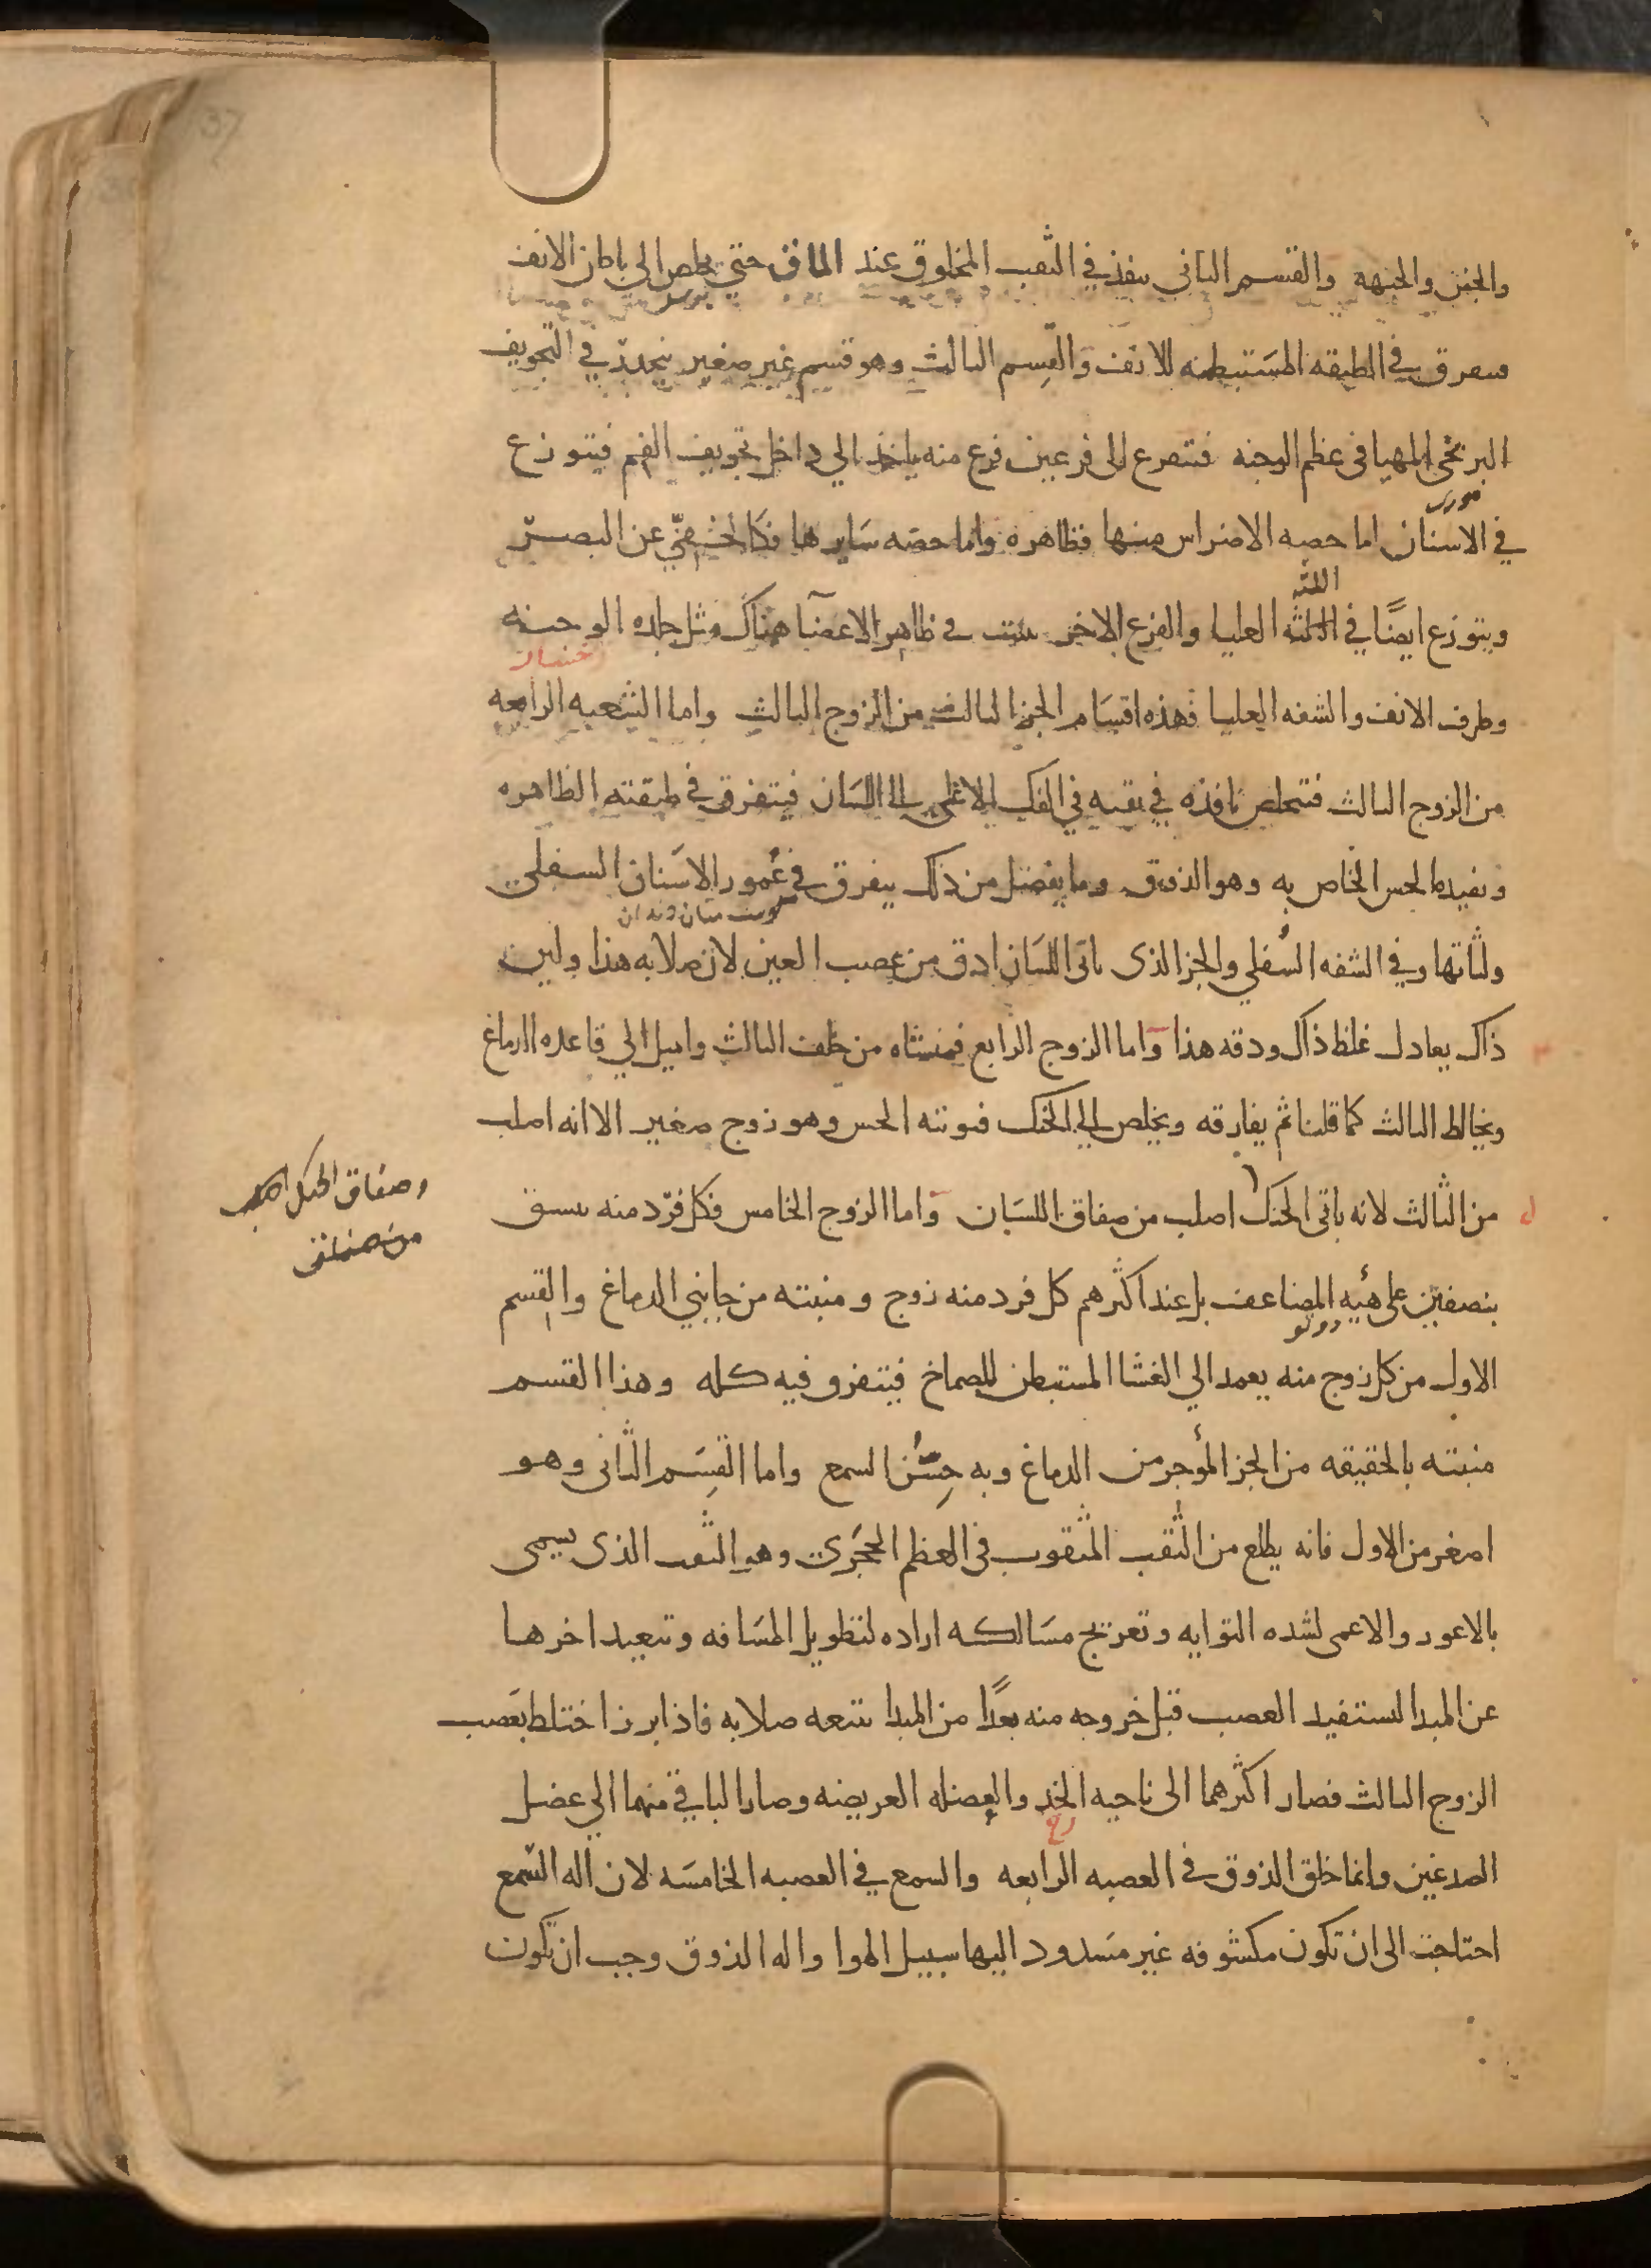 والجفن والجبهه والقسم الثاني ينفذ في الثقب المخلوق عند الماق حتى يخلص الى باطن الانف
فيتفرق في الطبقه المستبطنه للانف والقسم الثالث وهو قسم غير صغير ينحدر في التجويف
البربخى المهيا فى عظم الوجنه فيتفرع الى فرعين فرع منه ياخذ الي داخل تجويف الفم فيتوزع
في الاسنان اما حصه الاضراس منها فظاهره واما حصه سايرها فكالخفي عن البصر
اللثه
ويتوزع ايضًا في اللثه العليا والفرع الاخر ينبت في ظاهر الاعضآ هناك مثل جلده الوجنه
وطرف الانف والشفه العليا فهذه اقسام الجز الثالث من الزوج الثالث واما الشعبه الرابعه
من الزوج الثالث فتتخلص نافذه في ثقبه في الفك الاعلى الى اللسان فيتفرق في طبقته الظاهره
وتفيده الحس الخاص به وهو الذوق وما يفضل من ذلك يتفرق في عُمور الاسنان السفلي
ولثاتها وفي الشفه السُفلي والجز الذى ياتى اللسان ادق من عصب العين لان صلابه هذا ولين
ذاك يعادل غلظ ذاك ودقه هذا واما الزوج الرابع فمنشاه من خلف الثالث واميل الي قاعده الدماغ
ويخالط الثالث كما قلنا ثم يفارقه ويخلص الى الحنك فيوتيه الحس وهو زوج صغير الا انه اصلب
من الثالث لانه ياتى الحنك اصلب من صفاق اللسان واما الزوج الخامس فكل فرد منه ينشق
وصفاق الحنك اصلب
من صفاق
بنصفين على هيئه المضاعف بل عند اكثرهم كل فرد منه زوج ومنبته من جانبي الدماغ والقسم
الاول من كل زوج منه يعمد الي الغشا المستبطن للصماخ فيتفرق فيه كله وهذا القسم
منبته بالحقيقه من الجز المؤخر من الدماغ وبه حِسُّ السمع واما القِسَم الثانى وهو
اصغر من الاول فانه يطلع من الثقب المثقوب فى العظم الحجَرى وهو الثقب الذى يسمى
بالاعور والاعمى لشده التوايه وتعريج مسَالكه اراده لتطويل المسَافه وتبعيد اخرها
عن المبدا ليستفيد العصب قبل خروجه منه بعدًا من المبدا يتبعه صلابه فاذا برز اختلط بعَصب
الزوج الثالث فصار اكثرهما الى ناحيه الخد والعضله العريضه وصار الباقي منهما الي عضل
الصدغين وانما خلق الذوق في العصبه الرابعه والسمع في العصبه الخامسَه لان اله السّمع
احتاجت الى ان تكون مكشوفه غير مسَدود اليها سبيل الهوا واله الذوق وجب ان تكون